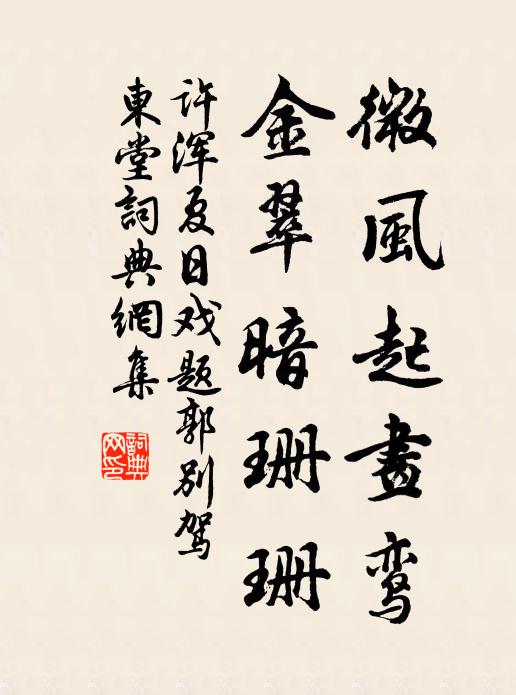 微風起畫鸾
金翠暗珊珊
许浑夏日戏题郭别驾
東堂詞典網集
詞典
网印